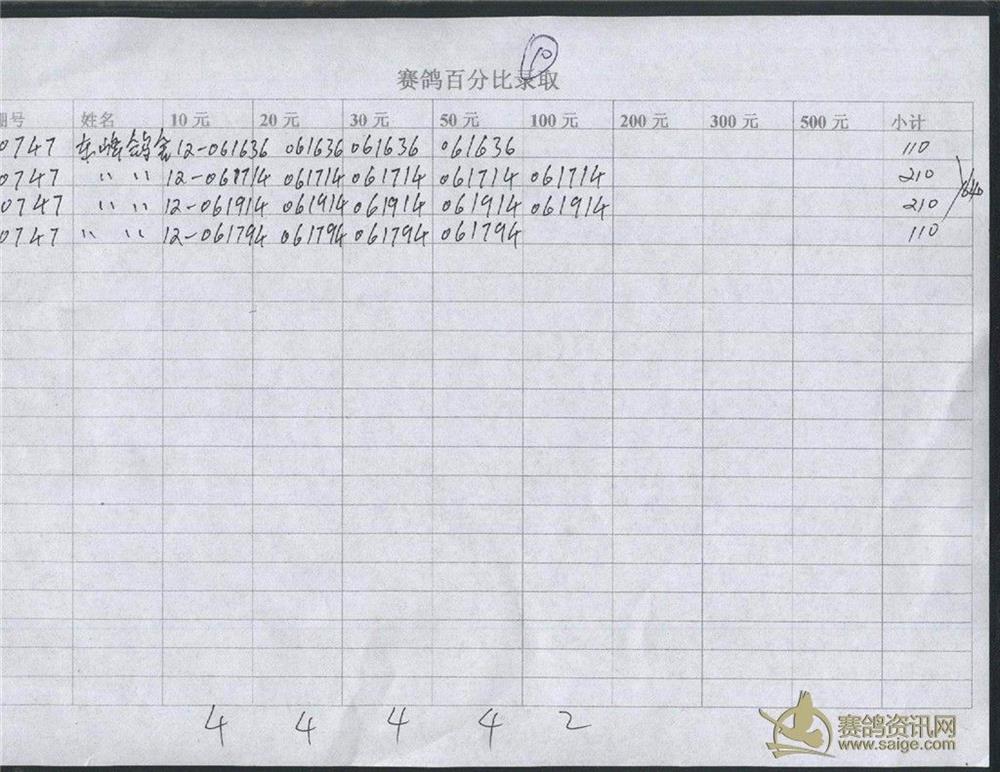 10
赛鸽百分比录取
棚号 姓名 10 元 20 元 30 元 50 元 100 元 200 元 300 元 500 元 小计
0747 东峰鸽舍 12-061636 061636 061636 061636 110
0747 〃 〃 12-061714 061714 061714 061714 061714 210
0747 〃 〃 12-061914 061914 061914 061914 061914 210
0747 〃 〃 12-061794 061794 061794 061794 110
640
4 4 4 4 2
赛鸽资讯网
www.saige.com